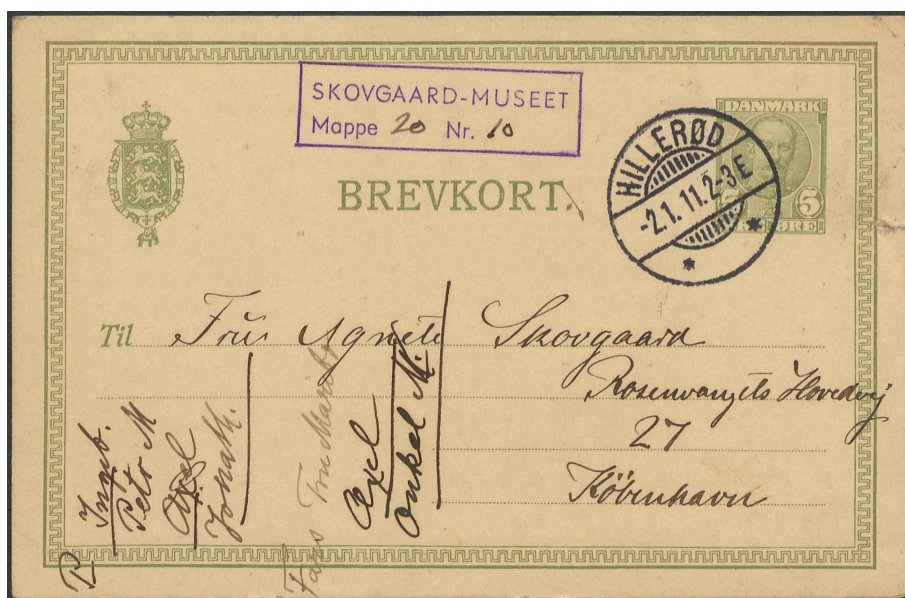 SKOVGAARD-MUSEET
Mappe 20 Nr. 10
DANMARK
HILLERØD
-2.1.11.2-3E
5
ØRE
BREVKORT.
Til Fru Agnete Skovgaard
Rosenvangets Hovedvej
27
København
Ingeb.
Petr M
Axel
Jonath.
Fars
Axel
Onkel M.